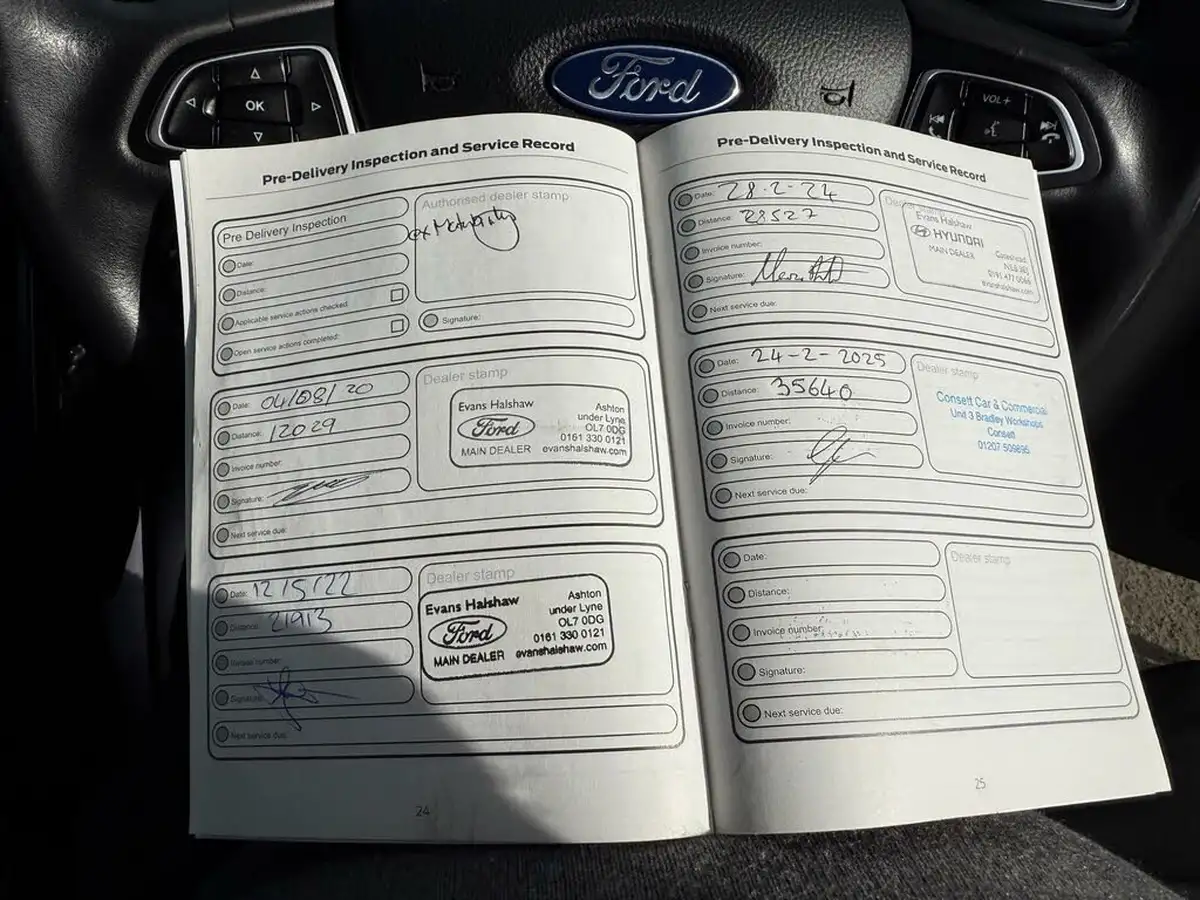 OK
Ford
VOL+
Pre-Delivery Inspection and Service Record
Pre Delivery Inspection
Date:
Distance:
Applicable service actions checked:
Open service actions completed:
Authorised dealer stamp
ex Motability
Signature:
Date: 04/08/20
Distance: 12029
Invoice number:
Signature:
Next service due:
Dealer stamp
Evans Halshaw
Ford
MAIN DEALER
Ashton
under Lyne
OL7 0DG
0161 330 0121
evanshalshaw.com
Date: 12/5/22
Distance: 21913
Invoice number:
Signature:
Next service due:
Dealer stamp
Evans Halshaw
Ford
MAIN DEALER
Ashton
under Lyne
OL7 0DG
0161 330 0121
evanshalshaw.com
24
Pre-Delivery Inspection and Service Record
Date: 28-2-24
Distance: 28527
Invoice number:
Signature:
Next service due:
Dealer stamp
Evans Halshaw
HYUNDAI
MAIN DEALER
Gateshead
NE8 3EJ
0191 477 0066
evanshalshaw.com
Date: 24-2-2025
Distance: 35640
Invoice number:
Signature:
Next service due:
Dealer stamp
Consett Car & Commercial
Unit 3 Bradley Workshops
Consett
01207 509895
Date:
Distance:
Invoice number:
Signature:
Next service due:
Dealer stamp
25